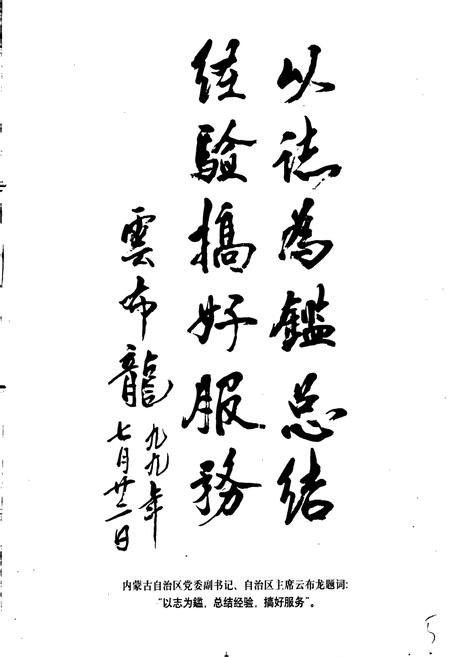 以誌為鑑总结
经验搞好服務
雲布龍
九九年
七月廿二日
内蒙古自治区党委副书记、自治区主席云布龙题词:
“以志为鑑，总结经验，搞好服务”。